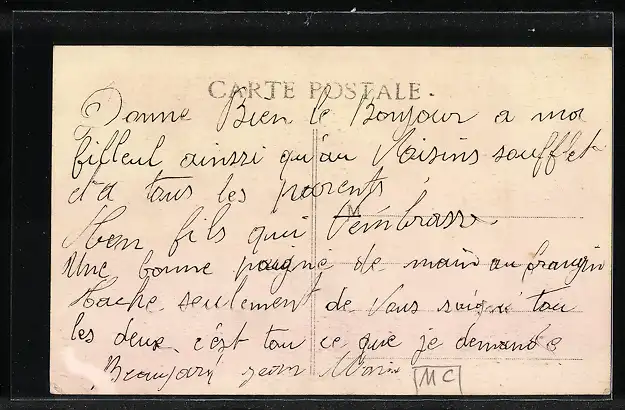 CARTE POSTALE.
Donne Bien le Bonjour a mon
filleul ainssi qu'au Voisins soufflet
et a tous les parents
M
Ton fils qui t'embrasse
Une bonne poigne de main au frangin
Tache seulement de vous soigner tou
les deux, c'est tou ce que je demande
Beaujard Jean Marie
MC